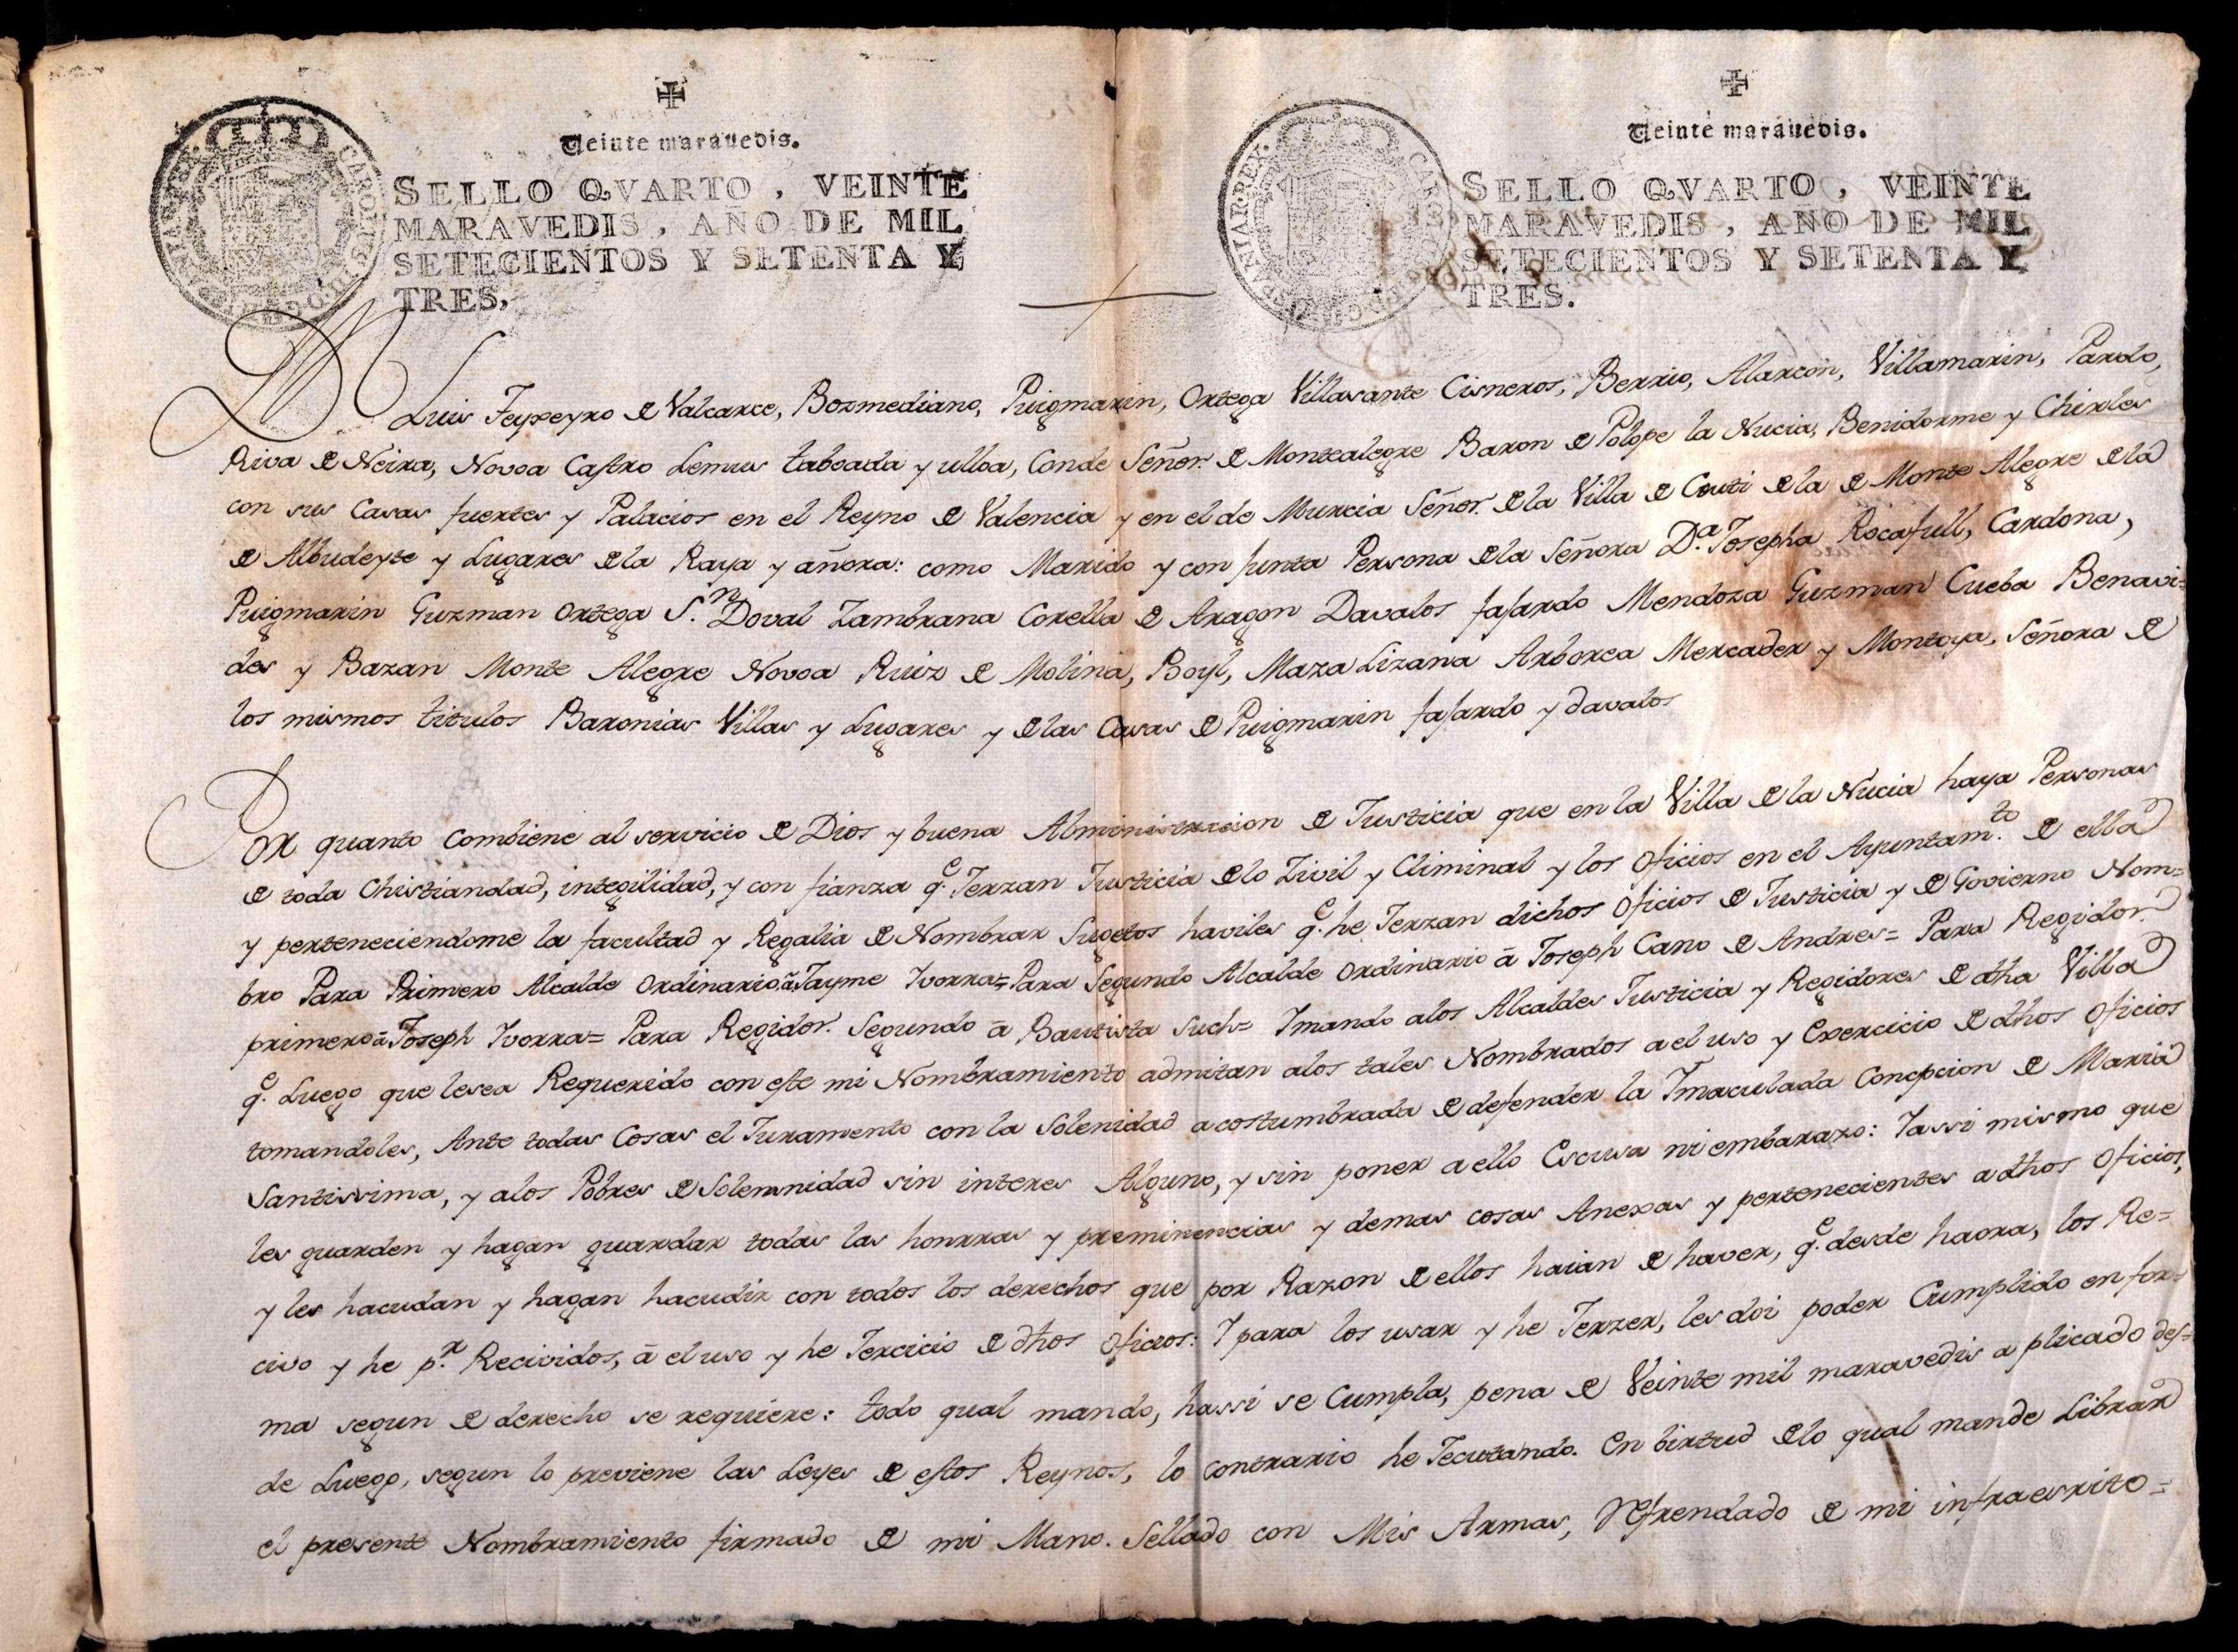 Veinte maravedis.
SELLO QVARTO, VEINTE
MARAVEDIS, AÑO DE MIL
SETECIENTOS Y SETENTA Y
TRES.
Veinte maravedis.
SELLO QVARTO, VEINTE
MARAVEDIS, AÑO DE MIL
SETECIENTOS Y SETENTA Y
TRES.
Dn Luis Feyxeyro de Valcarce, Bozmediano, Puigmarin, Ortega Villasante Cisneros, Berrio, Alarcon, Villamarin, Pardo,
Riva de Neira, Novoa Castro Lemus taboada y ulloa, Conde Señor de Montealegre Baron de Polope la Nucia, Benidorme y Chirles
con sus Casas fuertes y Palacios en el Reyno de Valencia y en el de Murcia Señor de la Villa de Ceuti de la de Monte Alegre de la
de Albudeyte y Lugares de la Raya y añora: como Marido y con junta Persona de la Señora D.ª Josepha Rocafull, Cardona,
Puigmarin Guzman Ortega S.n Doval Zambrana Corella de Aragon Davalos fajardo Mendoza Guzman Cueba Benavi=
des y Bazan Monte Alegre Novoa Ruiz de Molina, Boyl, Maza Lizana Arborea Mercader y Montoya, Señora de
los mismos titulos Baronias Villas y Lugares y de las Casas de Puigmarin fajardo y davalos
Por quanto combiene al servicio de Dios y buena Alministracion de Justicia que en la Villa de la Nucia haya Personas
de toda Chistiandad, integilidad, y con fianza q.e Jerzan Justicia de lo Zivil y Climinal y los Oficios en el Ayuntam.to de ella
y perteneciendome la facultad y Regalia de Nombrar Sugetos haviles q.e he Jerzan dichos Oficios de Justicia y de Govierno Nom=
bro Para Primero Alcalde Ordinario â Jayme Ivorra= Para Segundo Alcalde Ordinario â Joseph Cano de Andres= Para Regidor
primero â Joseph Ivorra= Para Regidor Segundo â Bautista Such= Imando alos Alcaldes Justicia y Regidores de dha Villa
q.e Luego que lesea Requerido con este mi Nombramiento admitan alos tales Nombrados a el uso y Exercicio de dhos Oficios
tomandoles, Ante todas Cosas el Juramento con la Solenidad acostumbrada de defender la Imaculada Concepcion de Maria
Santissima, y alos Pobres de Solemnidad sin interes Alguno, y sin poner a ello Escusa ni embarazo: Iassi mismo que
les guarden y hagan guardar todas las honrras y preminencias y demas cosas Anexas y pertenecientes a dhos Oficios,
y les hacudan y hagan hacudir con todos los derechos que por Razon de ellos haian de haver, q.e desde haora, los Re=
civo y he p.r Recividos, â el uso y he Jercicio de dhos Oficios: I para los usar y he Jerzer, les doi poder Cumplido en for=
ma segun de derecho se requiere: todo qual mando, hassi se Cumpla, pena de Veinte mil maravedis a plicado des=
de Luego, segun lo previene las Leyes de estos Reynos, lo contrario he Jecutando. En birtud de lo qual mande Librar
el presente Nombramiento firmado de mi Mano. Sellado con Mis Armas, Refrendado de mi infraescrito=